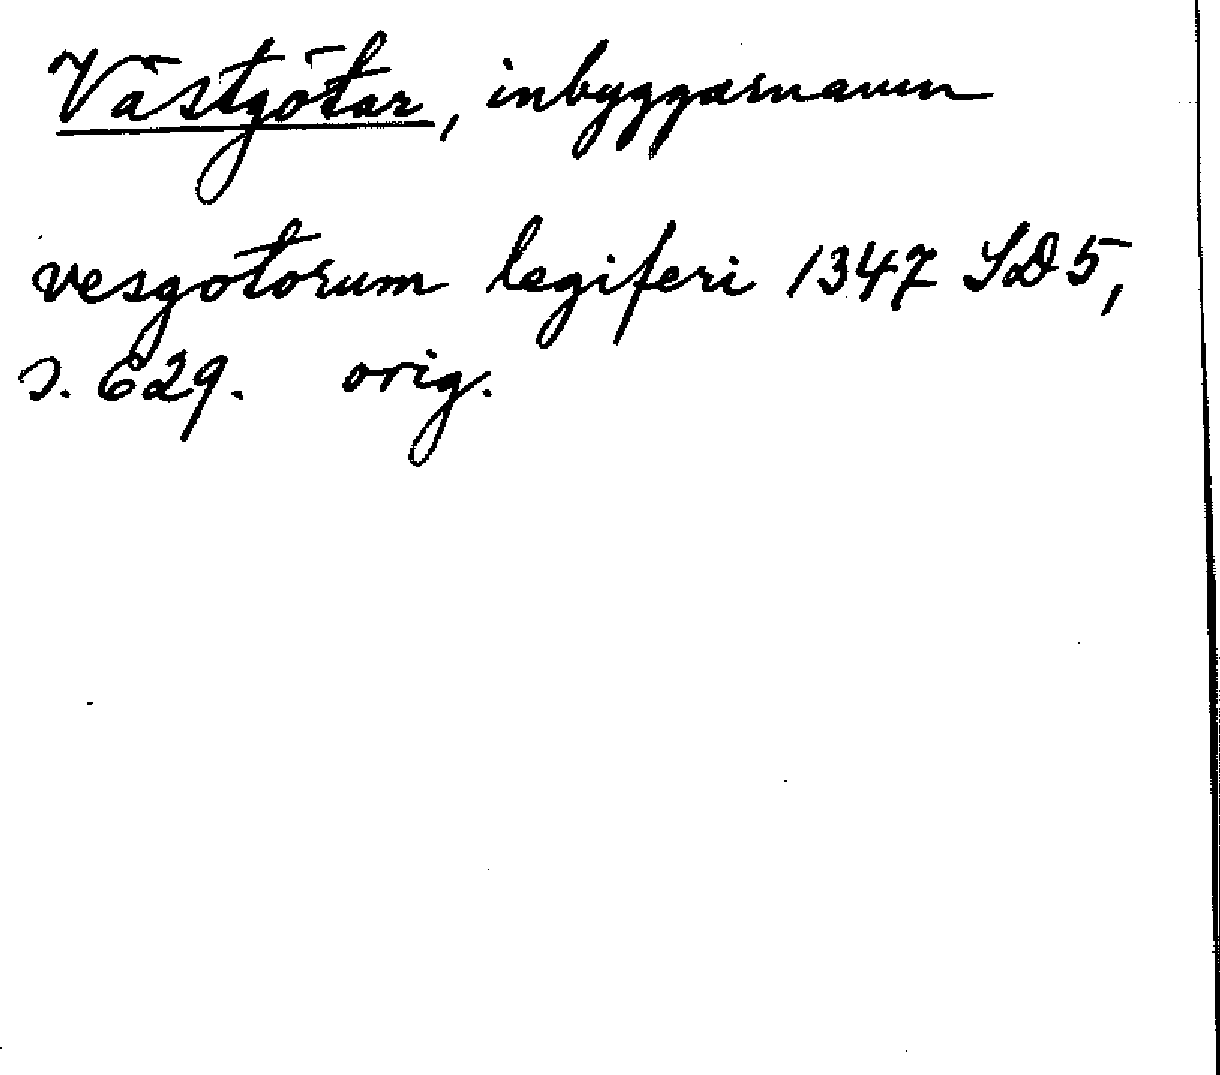 Västgötar, inbyggarnamn
vesgotorum legiferi 1347 SD 5,
s. 629. orig.